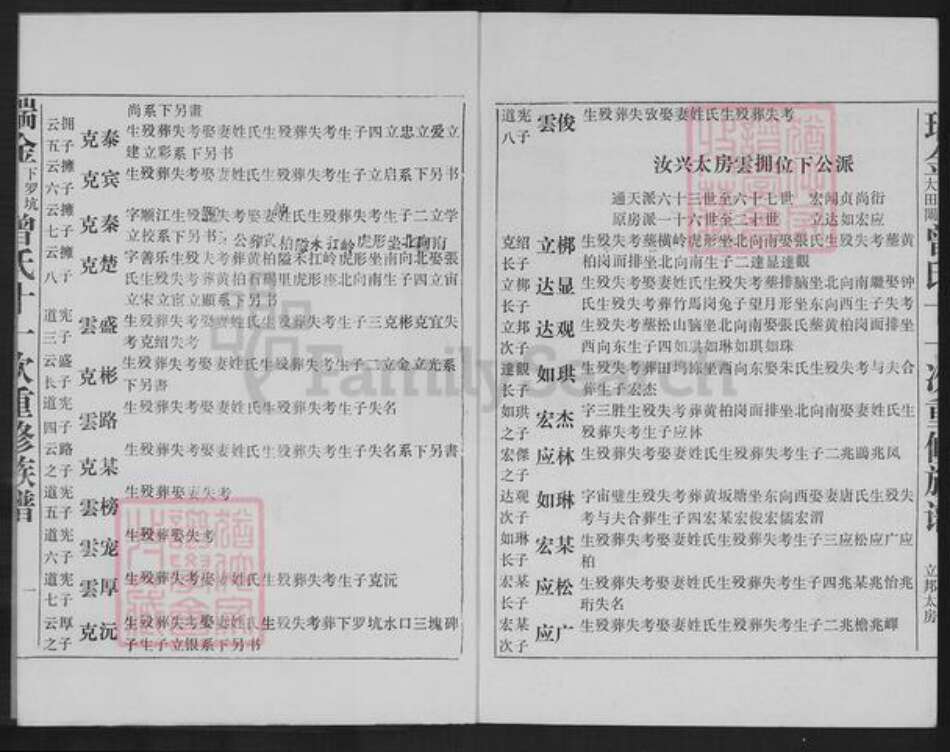 道宪八子 雲俊 生殁葬失攷娶妻姓氏生殁葬失考
汝兴太房雲拥位下公派
通天派六十三世至六十七世 宏闻贞尚衍
原房派一十六世至二十世 立达如宏应
克绍长子 立梆 生殁失考葬横岭虎形坐北向南娶張氏生殁失考葬黄
柏岗面排坐北向南生子二達显達觀
立梆长子 达显 生殁失考娶妻姓氏生殁失考葬排脑坐北向南繼娶钟
氏生殁失考葬竹馬岗兔子望月形坐东向西生子失考
立邦次子 达观 生殁失考葬松山脑坐北向南娶張氏葬黄柏岗面排坐
西向东生子四如琪如琳如琪如珠
達觀长子 如琪 生殁失考葬田坞栋坐西向东娶朱氏生殁失考与夫合
葬生子宏杰
如琪之子 宏杰 字三胜生殁失考葬黄柏岗面排坐北向南娶妻姓氏生
殁葬失考生子应林
宏傑之子 应林 生殁葬失考娶妻姓氏生殁葬失考生子二兆鵾兆凤
达观次子 如琳 字宙璧生殁失考葬黄坂塘坐东向西娶唐氏生殁失
考与夫合葬生子四宏某宏俊宏儒宏渭
如琳长子 宏某 生殁葬失考娶妻姓氏生殁葬失考生子三应松应广应
柏
宏某长子 应松 生殁葬失考娶妻姓氏生殁葬失考生子四兆某兆怡兆
珩失名
宏某次子 应广 生殁葬失考娶妻姓氏生殁葬失考生子二兆檐兆嶂
大田
立邦太房
瑞金下罗坑曾氏十一次重修族譜
一
尚系下另畫
云拥五子 克泰 生殁葬失考娶妻姓氏生殁葬失考生子四立忠立爱立
建立彩系下另书
云擁六子 克宾 生殁葬失考娶妻姓氏生殁葬失考生子立启系下另书
云擁七子 克秦 字顺江生殁葬失考娶妻姓氏生殁葬失考生子二立学
立校系下另书
云擁八子 克楚 字善乐生殁失考葬黄柏隘禾扛岭虎形坐南向北娶張
氏生殁失考葬黄柏里虎形座北向南生子四立宙
立宋立宦立顯系下另书
道宪三子 雲盛 生殁葬失考娶妻姓氏生殁葬失考生子三克彬克宜失
考克绍失考
云盛长子 克彬 生殁葬失考娶妻姓氏生殁葬失考生子二立金立光系
下另書
道宪四子 雲路 生殁葬失考娶妻姓氏生殁葬失考生子失名
云路之子 克某 生殁葬失考娶妻姓氏生殁葬失考生子失名系下另書
道宪五子 雲榜 生殁葬娶妻失考
道宪六子 雲宠 生殁葬娶失考
道宪七子 雲厚 生殁葬失考娶妻姓氏生殁葬失考生子克沅
云厚之子 克沅 生殁葬失考娶妻姓氏生殁失考葬下罗坑水口三塊碑
子生子立银系下另书
FamilySearch